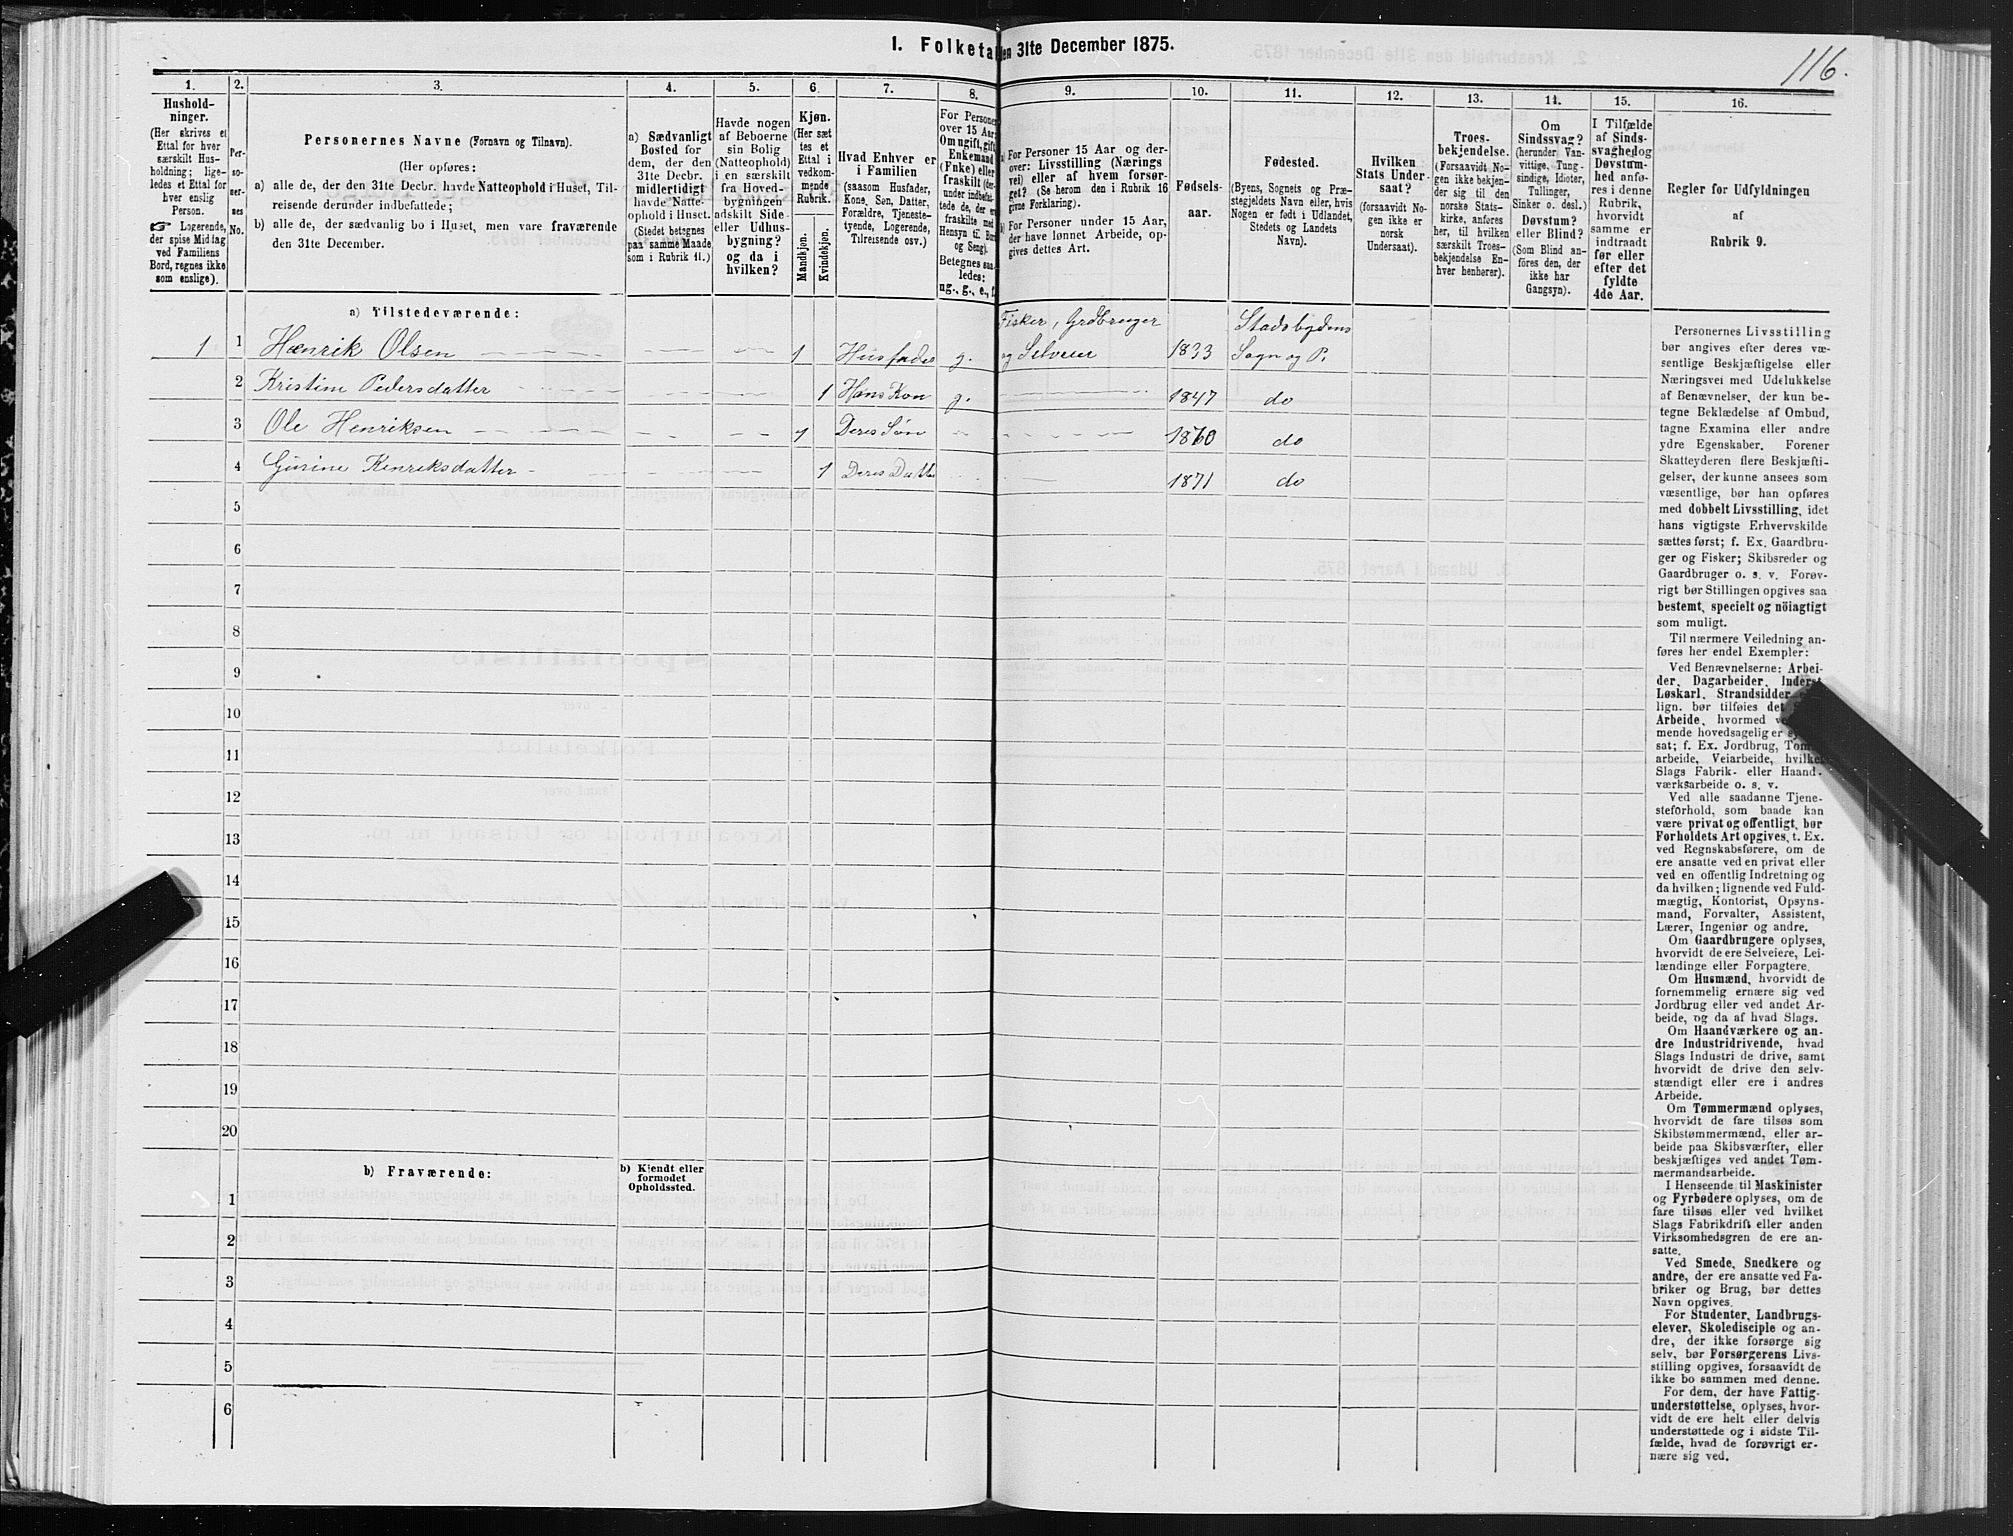 116.
I. Folketal den 31te December 1875.
1. 2. 3. 4. 5. 6. 7. 8. 9. 10. 11. 12. 13. 14. 15. 16.
Hushold-
ninger.
(Her skrives et
Ettal for hver
særskilt Hus-
holdning; lige-
ledes et Ettal for
hver enslig
Person.
☞ Logerende,
der spise Middag
ved Familiens
Bord, regnes ikke
som enslige).
Per-
so-
ner-
nes
No.
Personernes Navne (Fornavn og Tilnavn).
(Her opføres:
a) alle de, der den 31te Decbr. havde Natteophold i Huset, Til-
reisende derunder indbefattede;
b) alle de, der sædvanlig bo i Huset, men vare fraværende
den 31te December.
a) Sædvanligt
Bosted for
dem, der den
31te Decbr.
midlertidigt
havde Natte-
ophold i Huset.
(Stedet betegnes
paa samme Maade
som i Rubrik 11.)
Havde nogen
af Beboerne
sin Bolig
(Natteophold)
i en særskilt
fra Hoved-
bygningen
adskilt Side-
eller Udhus-
bygning?
og da i
hvilken?
Kjøn.
(Her sæt
tes et
Ettal i
vedkom-
mende
Rubrik.
Mandkjøn.
Kvindekjøn.
Hvad Enhver er
i Familien
(saasom Husfader,
Kone, Søn, Datter,
Forældre, Tjeneste-
tyende, Logerende,
Tilreisende osv.)
For Personer
over 15 Aar:
Om ugift, gift,
Enkemand
(Enke) eller
fraskilt (der-
under indbefat-
tede de, der er
fraskilte med
Hensyn til Bord
og Seng).
Betegnes saa-
ledes:
ug., g., e., f.
a) For Personer 15 Aar og der-
over: Livsstilling (Nærings
vei) eller af hvem forsør-
get? (Se herom den i Rubrik 16
givne Forklaring).
b) For Personer under 15 Aar,
der have lønnet Arbeide, op-
gives dettes Art.
Fødsels-
aar.
Fødested.
(Byens, Sognets og Præ-
stegjeldets Navn eller, hvis
Nogen er født i Udlandet,
Stedets og Landets
Navn).
Hvilken
Stats Under-
saat?
(forsaavidt No-
gen ikke er
norsk
Undersaat).
Troes-
bekjendelse.
(Forsaavidt No-
gen ikke bekjen-
der sig til den
norske Stats-
kirke, anføres
her, til hvilken
særskilt Troes-
bekjendelse En-
hver henhører).
Om
Sindssvag?
(herunder Van-
vittige, Tung-
sindige, Idioter,
Tullinger,
Sinker o. desl.)
Døvstum?
eller Blind?
(Som Blind an-
føres den, der
ikke har
Gangsyn).
I Tilfælde
af Sinds-
svaghed og
Døvstum-
hed anfø-
res i denne
Rubrik,
hvorvidt
samme er
indtraadt
før eller
efter det
fyldte
4de Aar.
Regler for Udfyldningen
af
Rubrik 9.
a) Tilstedeværende:
1 1 Henrik Olsen 1 Husfader g. Fisker, Grdbruger og Selveier 1833 Stadsbygdens Sogn og P.
2 Kristine Pedersdatter 1 Hans Kon g. 1847 do
3 Ole Henriksen 1 Deres Søn 1870 do
4 Gurine Henriksdatter 1 Deres Datter 1871 do
5
6
7
8
9
10
11
12
13
14
15
16
17
18
19
20
b) Fraværende:
b) Kjendt eller
formodet
Opholdssted.
1
2
3
4
5
6
Personernes Livsstilling
bør angives efter deres væ-
sentlige Beskjæftigelse eller
Næringsvei med Udelukkelse
af Benævnelser, der kun be-
tegne Beklædelse af Ombud,
tagne Examina eller andre
ydre Egenskaber. Forener
Skatteyderen flere Beskjæfti-
gelser, der kunne ansees som
væsentlige, bør han opføres
med dobbelt Livsstilling, idet
hans vigtigste Erhvervskilde
sættes først; f. Ex. Gaardbru-
ger og Fisker; Skibsreder og
Gaardbruger o. s. v. Forøv-
rigt bør Stillingen opgives saa
bestemt, specielt og nöiagtigt
som muligt.
Til nærmere Veiledning an-
føres her endel Exempler:
Ved Benævnelserne: Arbei-
der, Dagarbeider, Inderst,
Løskarl, Strandsidder
lign. bør tilføies det
Arbeide, hvormed
mende hovedsagelig er
sat; f. Ex. Jordbrug, Tømmer-
arbeide, Veiarbeide, hvilket
Slags Fabrik- eller Haand-
værksarbeide o. s. v.
Ved alle saadanne Tjene-
steforhold, som baade kan
være privat og offentligt, bør
Forholdets Art opgives, t. Ex.
ved Regnskabsførere, om de
ere ansatte ved en privat eller
ved en offentlig Indretning og
da hvilken; lignende ved Fuld-
mægtig, Kontorist, Opsyns-
mand, Forvalter, Assistent,
Lærer, Ingeniør og andre.
Om Gaardbrugere oplyses,
hvorvidt de ere Selveiere, Lei-
lændinge eller Forpagtere.
Om Husmænd, hvorvidt de
fornemmelig ernære sig ved
Jordbrug eller ved andet Ar-
beide, og da af hvad Slags.
Om Haandværkere og an-
dre Industridrivende, hvad
Slags Industri de drive, samt
hvorvidt de drive den selv-
stændigt eller ere i andres
Arbeide.
Om Tømmermænd oplyses,
hvorvidt de fare tilsøs som
Skibstømmermænd, eller ar-
beide paa Skibsværfter, eller
beskjæftiges ved andet Tøm-
mermandsarbeide.
I Henseende til Maskinister
og Fyrbødere oplyses, om de
fare tilsøs eller ved hvilket
Slags Fabrikdrift eller anden
Virksomhedsgren de ere an-
satte.
Ved Smede, Snedkere og
andre, der ere ansatte ved Fa-
briker og Brug, bør dettes
Navn opgives.
For Studenter, Landbrugs-
elever, Skoledisciple og an-
dre, der ikke forsørge sig
selv, bør Forsørgerens Livs-
stilling opgives, forsaavidt de
ikke bo sammen med denne.
For dem, der have Fattig-
understøttelse, oplyses, hvor-
vidt de ere helt eller delvis
understøttede og i sidste Til-
fælde, hvad de forøvrigt er-
nære sig ved.